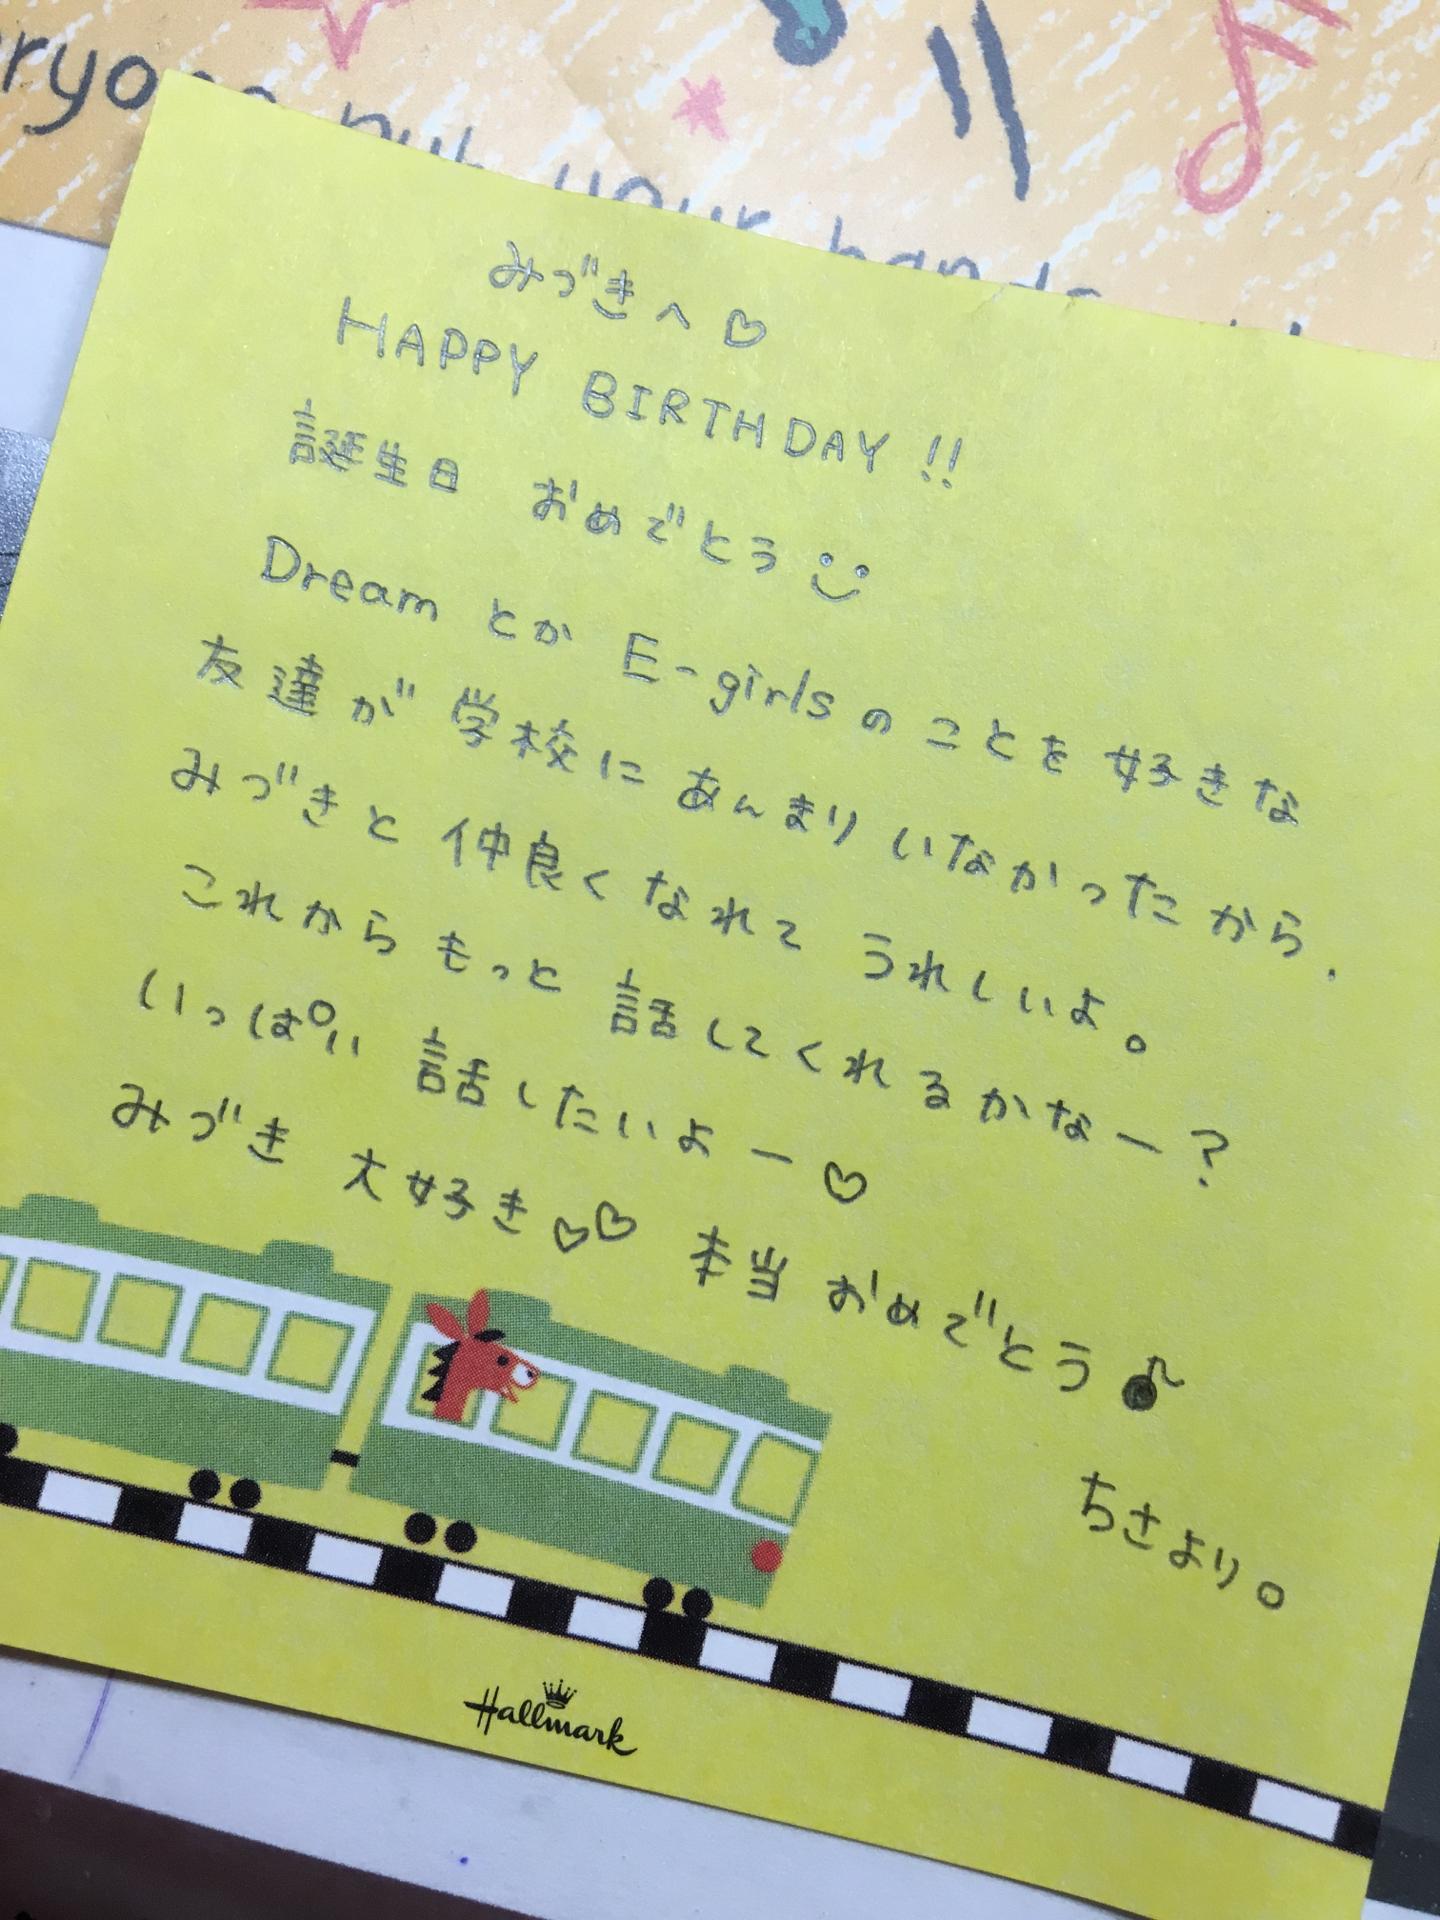 everyone put your hands
みづきへ♡
HAPPY BIRTHDAY !!
誕生日 おめでとう
Dream とか E-girls のことを好きな
友達が学校にあんまりいなかったから.
みづきと仲良くなれてうれしいよ。
これからもっと話してくれるかなー?
いっぱい話したいよー♡
みづき大好き♡♡ 本当おめでとう♪
ちさより。
Hallmark